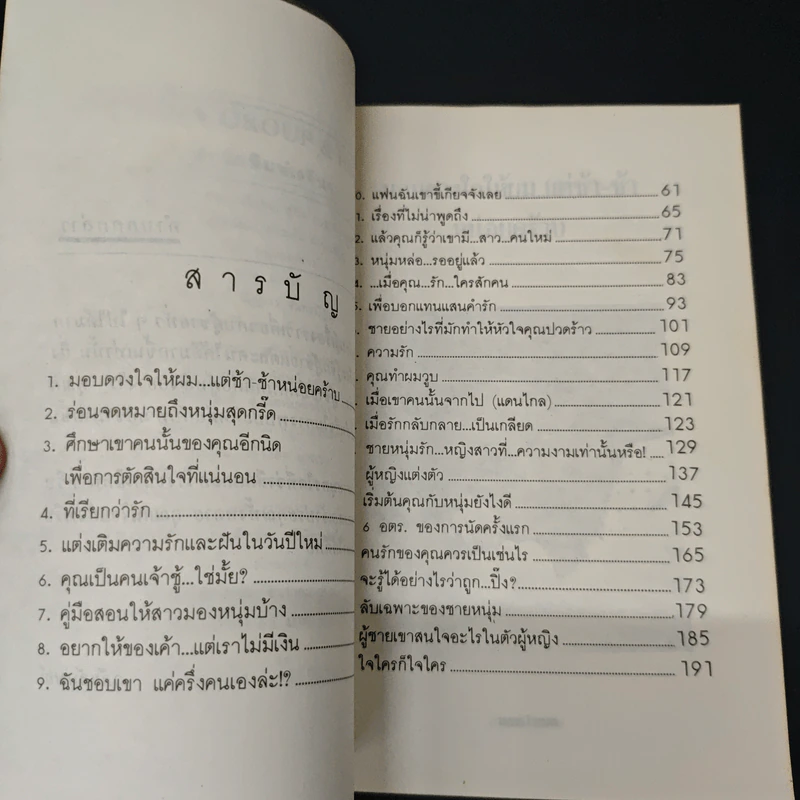 สารบัญ
1. มอบดวงใจให้ผม...แต่ช้า-ช้าหน่อยคร้าบ
2. ร่อนจดหมายถึงหนุ่มสุดกรี๊ด
3. ศึกษาเขาคนนั้นของคุณอีกนิด
เพื่อการตัดสินใจที่แน่นอน
4. ที่เรียกว่ารัก
5. แต่งเติมความรักและฝันในวันปีใหม่
6. คุณเป็นคนเจ้าชู้...ใช่มั้ย?
7. คู่มือสอนให้สาวมองหนุ่มบ้าง
8. อยากให้ของเค้า...แต่เราไม่มีเงิน
9. ฉันชอบเขา แค่ครึ่งคนเองล่ะ!?
0. แฟนฉันเขาขี้เกียจจังเลย 61
1. เรื่องที่ไม่น่าพูดถึง 65
2. แล้วคุณก็รู้ว่าเขามี...สาว...คนใหม่ 71
3. หนุ่มหล่อ...รออยู่แล้ว 75
...เมื่อคุณ...รัก...ใครสักคน 83
เพื่อบอกแทนแสนคำรัก 93
ชายอย่างไรที่มักทำให้หัวใจคุณปวดร้าว 101
ความรัก 109
คุณทำผมวูบ 117
เมื่อเขาคนนั้นจากไป (แดนไกล) 121
เมื่อรักกลับกลาย...เป็นเกลียด 123
ชายหนุ่มรัก...หญิงสาวที่...ความงามเท่านั้นหรือ! 129
ผู้หญิงแต่งตัว 137
เริ่มต้นคุณกับหนุ่มยังไงดี 145
6 อตร. ของการนัดครั้งแรก 153
คนรักของคุณควรเป็นเช่นไร 165
จะรู้ได้อย่างไรว่าถูก...ปิ๊ง? 173
ลับเฉพาะของชายหนุ่ม 179
ผู้ชายเขาสนใจอะไรในตัวผู้หญิง 185
ใจใครก็ใจใคร 191